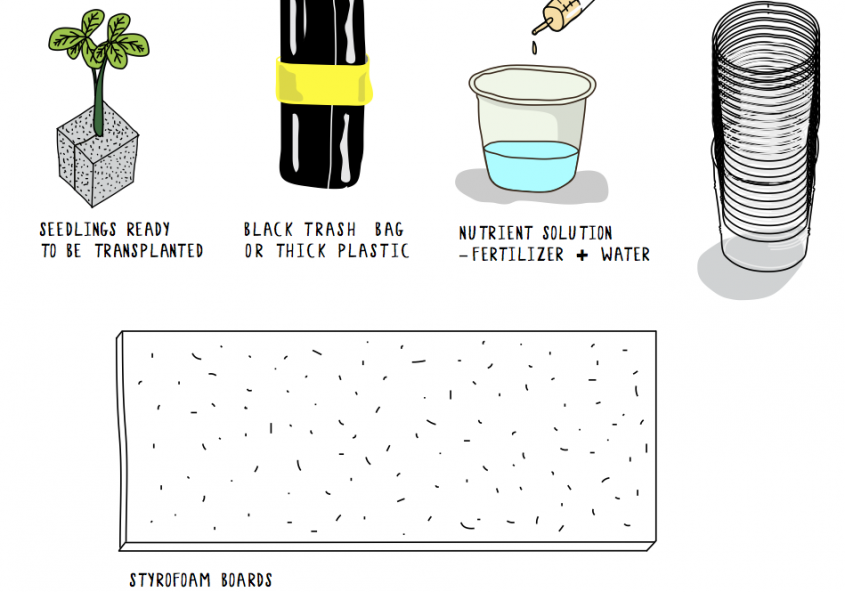 SEEDLINGS READY
TO BE TRANSPLANTED
BLACK TRASH BAG
OR THICK PLASTIC
NUTRIENT SOLUTION
-FERTILIZER + WATER
STYROFOAM BOARDS